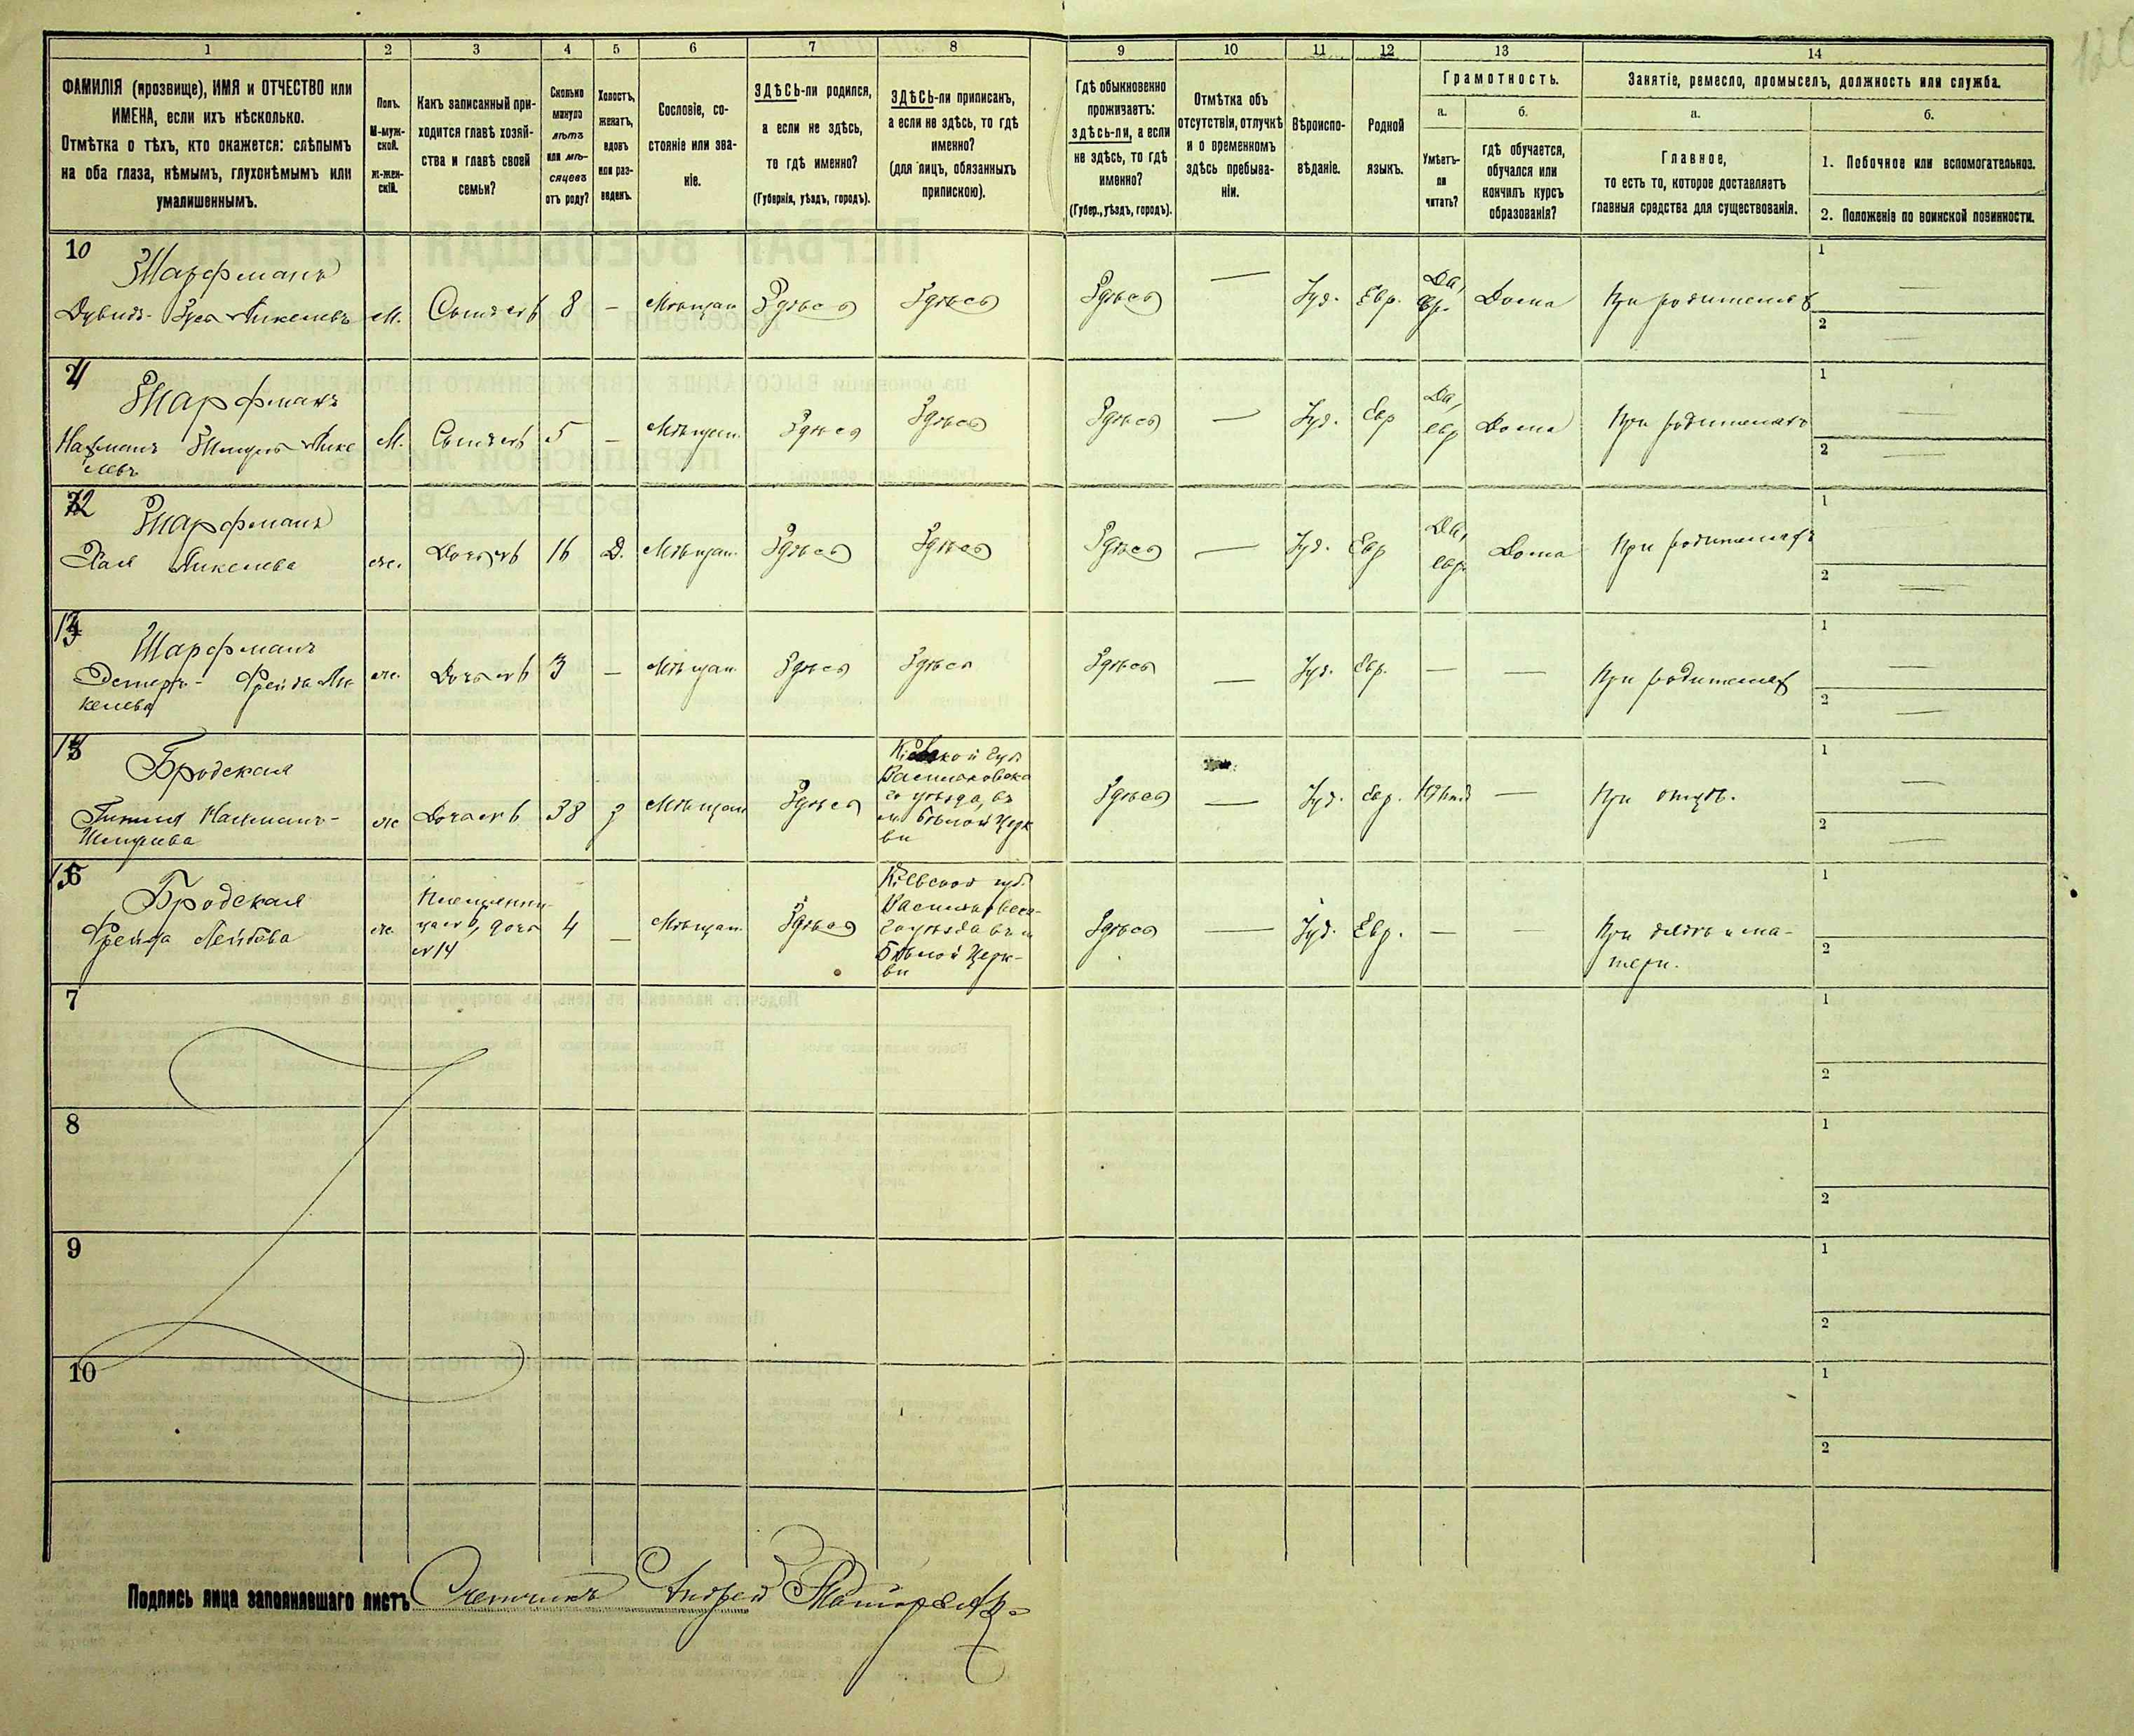 1 2 3 4 5 6 7 8 9 10 11 12 13 14
ФАМИЛІЯ (прозвище), ИМЯ и ОТЧЕСТВО или
ИМЕНА, если ихъ нѣсколько.
Отмѣтка о тѣхъ, кто окажется: слѣпымъ
на оба глаза, нѣмымъ, глухонѣмымъ или
умалишеннымъ.
Полъ.
М-муж-
ской.
Ж-жен-
скій.
Какъ записанный при-
ходится главѣ хозяй-
ства и главѣ своей
семьи?
Сколько
минуло
лѣтъ
или мѣ-
сяцевъ
отъ роду?
Холостъ,
женатъ,
вдовъ
или раз-
веденъ.
Сословіе, со-
стояніе или зва-
ніе.
ЗДѢСЬ-ли родился,
а если не здѣсь,
то гдѣ именно?
(Губернія, уѣздъ, городъ).
ЗДѢСЬ-ли приписанъ,
а если не здѣсь, то гдѣ
именно?
(для лицъ, обязанныхъ
припискою).
Гдѣ обыкновенно
проживаетъ:
здѣсь-ли, а если
не здѣсь, то гдѣ
именно?
(Губер., уѣздъ, городъ).
Отмѣтка объ
отсутствіи, отлучкѣ
и о временномъ
здѣсь пребыва-
ніи.
Вѣроиспо-
вѣданіе.
Родной
языкъ.
Грамотность.
а.
Умѣетъ-
ли
читать?
б.
гдѣ обучается,
обучался или
кончилъ курсъ
образованія?
Занятіе, ремесло, промыселъ, должность или служба.
а.
Главное,
то есть то, которое доставляетъ
главныя средства для существованія.
б.
1. Побочное или вспомогательное.
2. Положеніе по воинской повинности.
10
Шарфманъ
Дувидъ-Зуся Янкелевъ
М. Сынъ 8 — Мѣщан Здѣсь Здѣсь Здѣсь — Іуд. Евр. Да, Евр. Дома При родителях
1 —
2 —
11
Шарфманъ
Нахманъ Янке
левъ
М. Сынъ 5 — Мѣщан. Здѣсь Здѣсь Здѣсь — Іуд. Евр Да, евр Дома При родителяхъ
1 —
2 —
12
Шарфманъ
Хая Янкелева
ж. Дочь 16 Д. Мѣщан. Здѣсь Здѣсь Здѣсь — Іуд. Евр Да, евр. Дома При родителяхъ
1 —
2 —
Шарфманъ
Эстеръ-Фрейда Ян
келева
ж. Дочь 3 — Мѣщан. Здѣсь Здѣсь Здѣсь — Іуд. Евр. — — При родителях
1 —
2 —
Бродская
Нахманъ-
ж Дочь 38 Мѣщан Здѣсь
Кіевской губ
Васильковска
го уѣзда, въ
м. Бѣлой Церк
ви
Здѣсь — Іуд. Евр. — При отцѣ.
1 —
2 —
Бродская
Фрейда Лейбова
ж.
Племянни-
ца, дочь
№14
4 — Мѣщан. Здѣсь
Кіевской губ.
Васильковска-
го уѣзда въ м
Бѣлой Церк-
ви
Здѣсь — Іуд. Евр. — —
При дядѣ и ма-
тери.
1
2
7
1
2
8
1
2
9
1
2
10
1
2
Подпись лица заполнявшаго листъ Счетчикъ Андрей